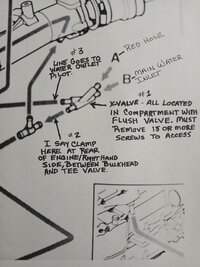 #3
LINE GOES TO
WATER OUTLET
PILOT.
A RED HOSE
B MAIN WATER
INLET
#1
X-VALVE - ALL LOCATED
IN COMPARTMENT WITH
FLUSH VALVE. MUST
REMOVE 18 OR MORE
SCREWS TO ACCESS
#2
I SAY CLAMP
HERE AT REAR
OF ENGINE/RIGHT HAND
SIDE, BETWEEN BULKHEAD
AND TEE VALVE.